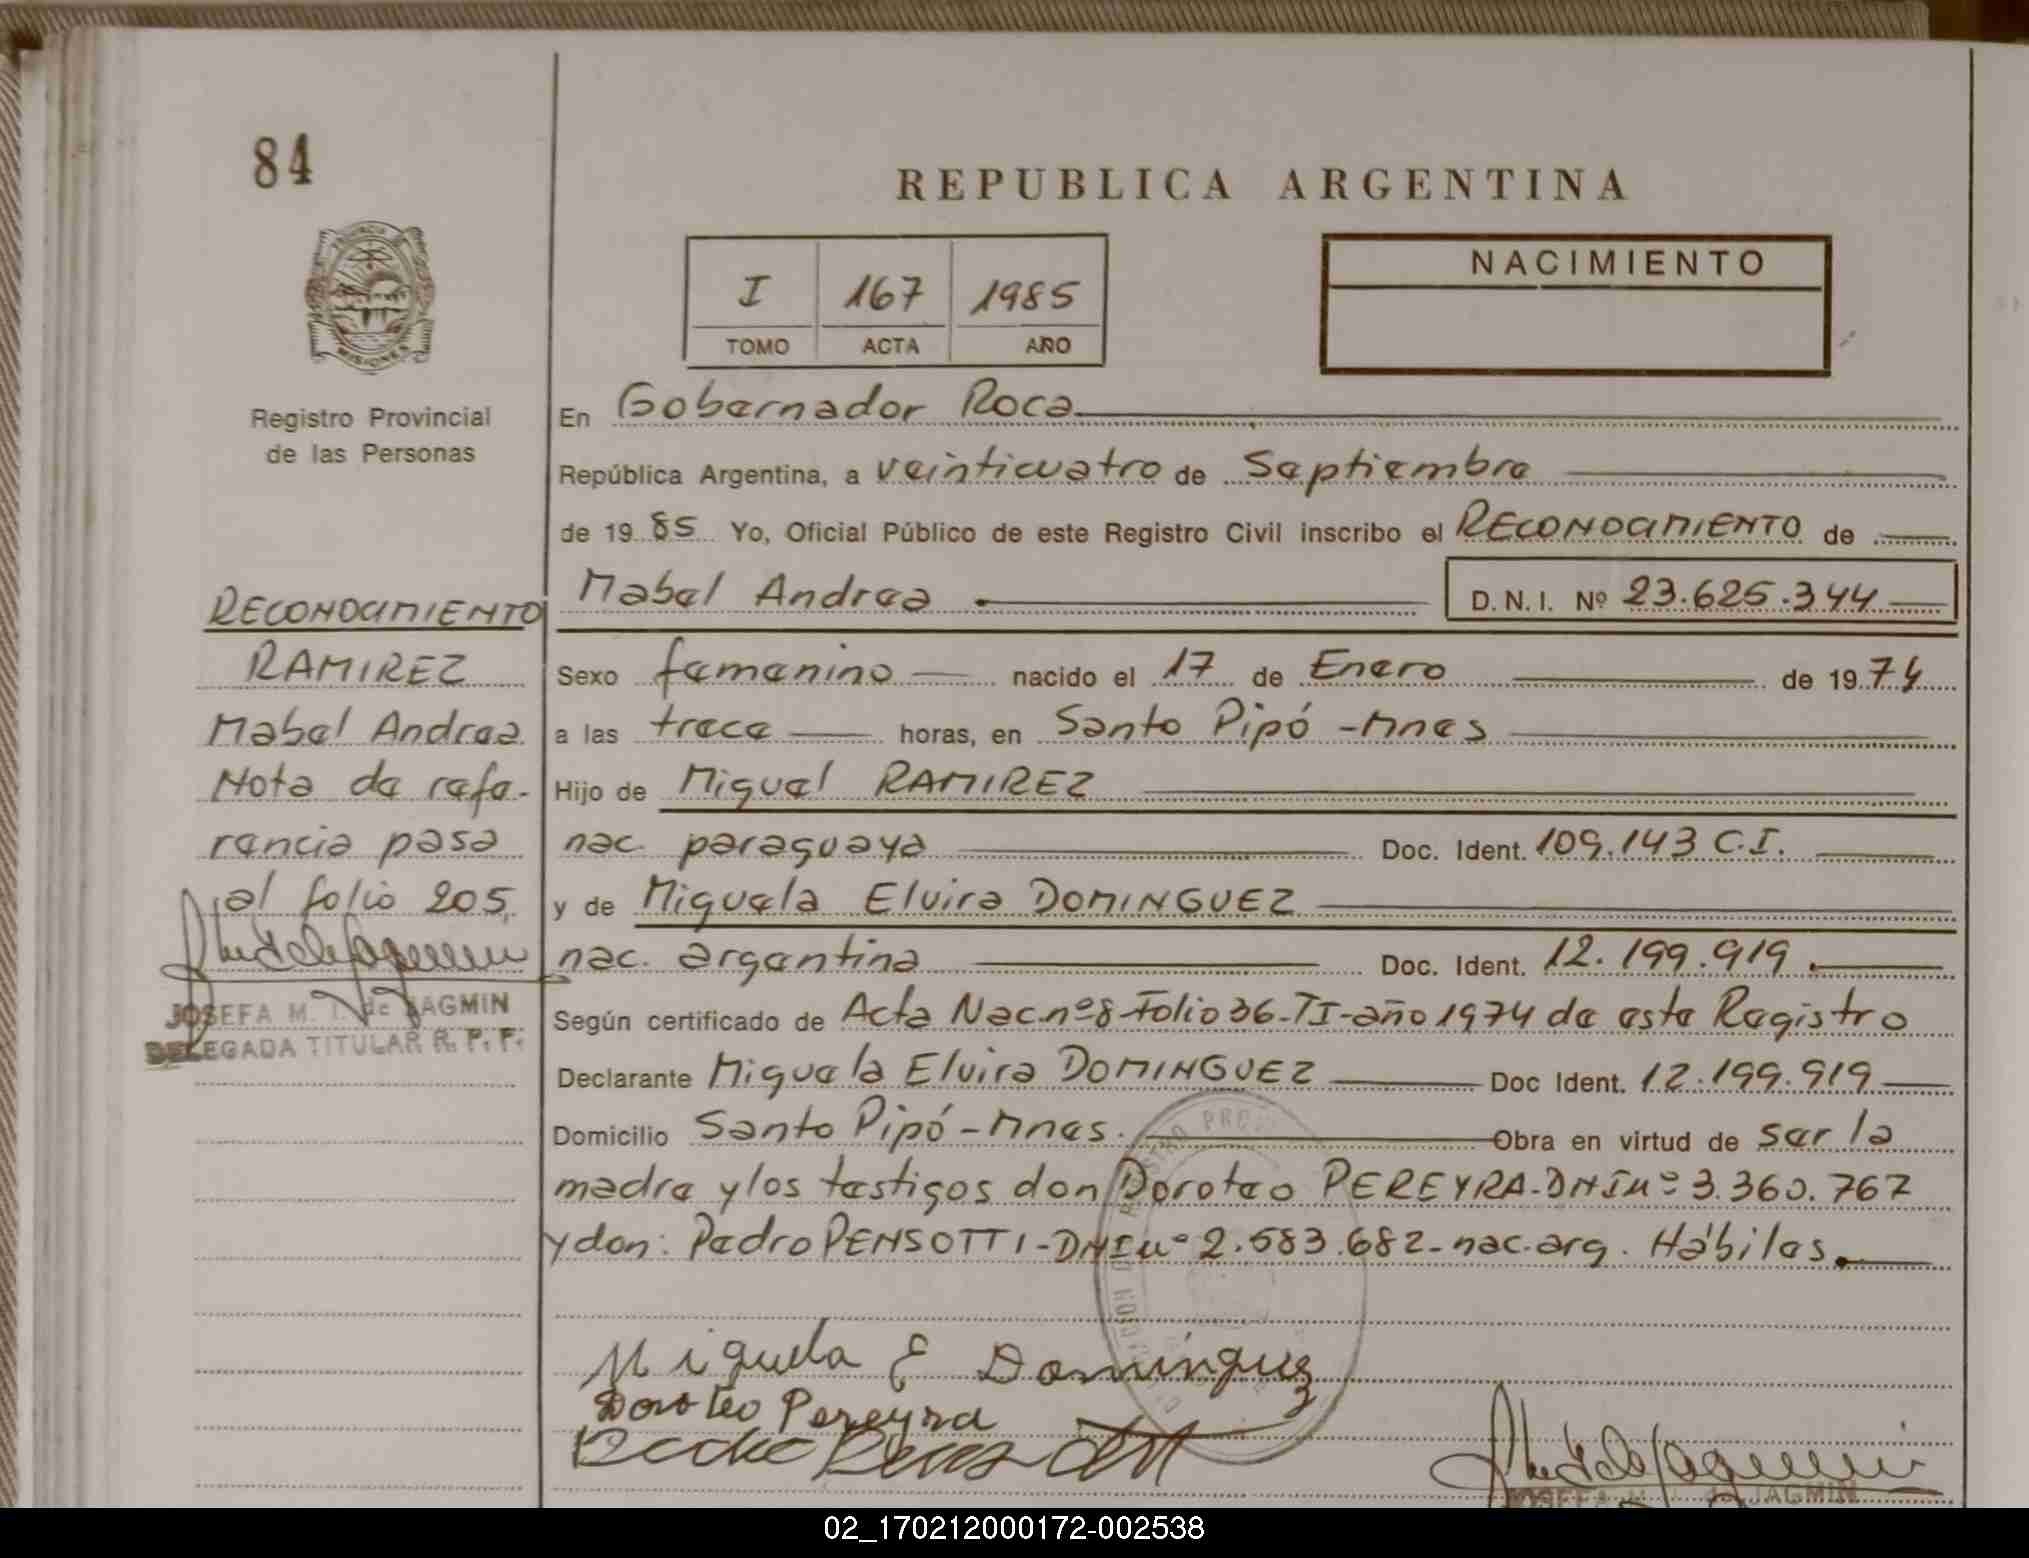 84
REPUBLICA ARGENTINA
I 167 1985
TOMO ACTA AÑO
NACIMIENTO
PROVINCIA DE
MISIONES
Registro Provincial
de las Personas
RECONOCIMIENTO
RAMIREZ
Mabel Andrea
Nota de refe-
rencia pasa
al folio 205
JOSEFA M. T. de JAGMIN
DELEGADA TITULAR R. P. P.
En Gobernador Roca
República Argentina, a veinticuatro de Septiembre
de 1985 Yo, Oficial Público de este Registro Civil inscribo el RECONOCIMIENTO de
Mabel Andrea D. N. I. Nº 23.625.344
Sexo femenino nacido el 17 de Enero de 1974
a las trece horas, en Santo Pipó - Mnes
Hijo de Miguel RAMIREZ
nac. paraguaya Doc. Ident. 109.143 C.I.
y de Miguela Elvira DOMINGUEZ
nac. argentina Doc. Ident. 12.199.919
Según certificado de Acta Nac. nº 8 - Folio 36 - TI - año 1974 de este Registro
Declarante Miguela Elvira DOMINGUEZ Doc Ident. 12.199.919
Domicilio Santo Pipó - Mnes. Obra en virtud de ser la
madre y los testigos don Doroteo PEREYRA - DNI nº 3.360.767
y don: Pedro PENSOTTI - DNI nº 2.583.682 - nac. arg. Hábiles.
Miguela E Dominguez
Doroteo Pereyra
JOSEFA M. de JAGMIN
02_170212000172-002538